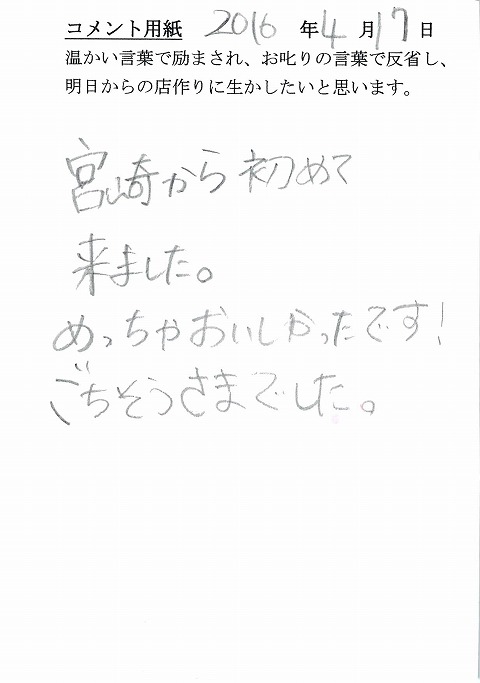 コメント用紙 2016 年 4 月 17 日
温かい言葉で励まされ、お叱りの言葉で反省し、
明日からの店作りに生かしたいと思います。
宮崎から初めて
来ました。
めっちゃおいしかったです!
ごちそうさまでした。